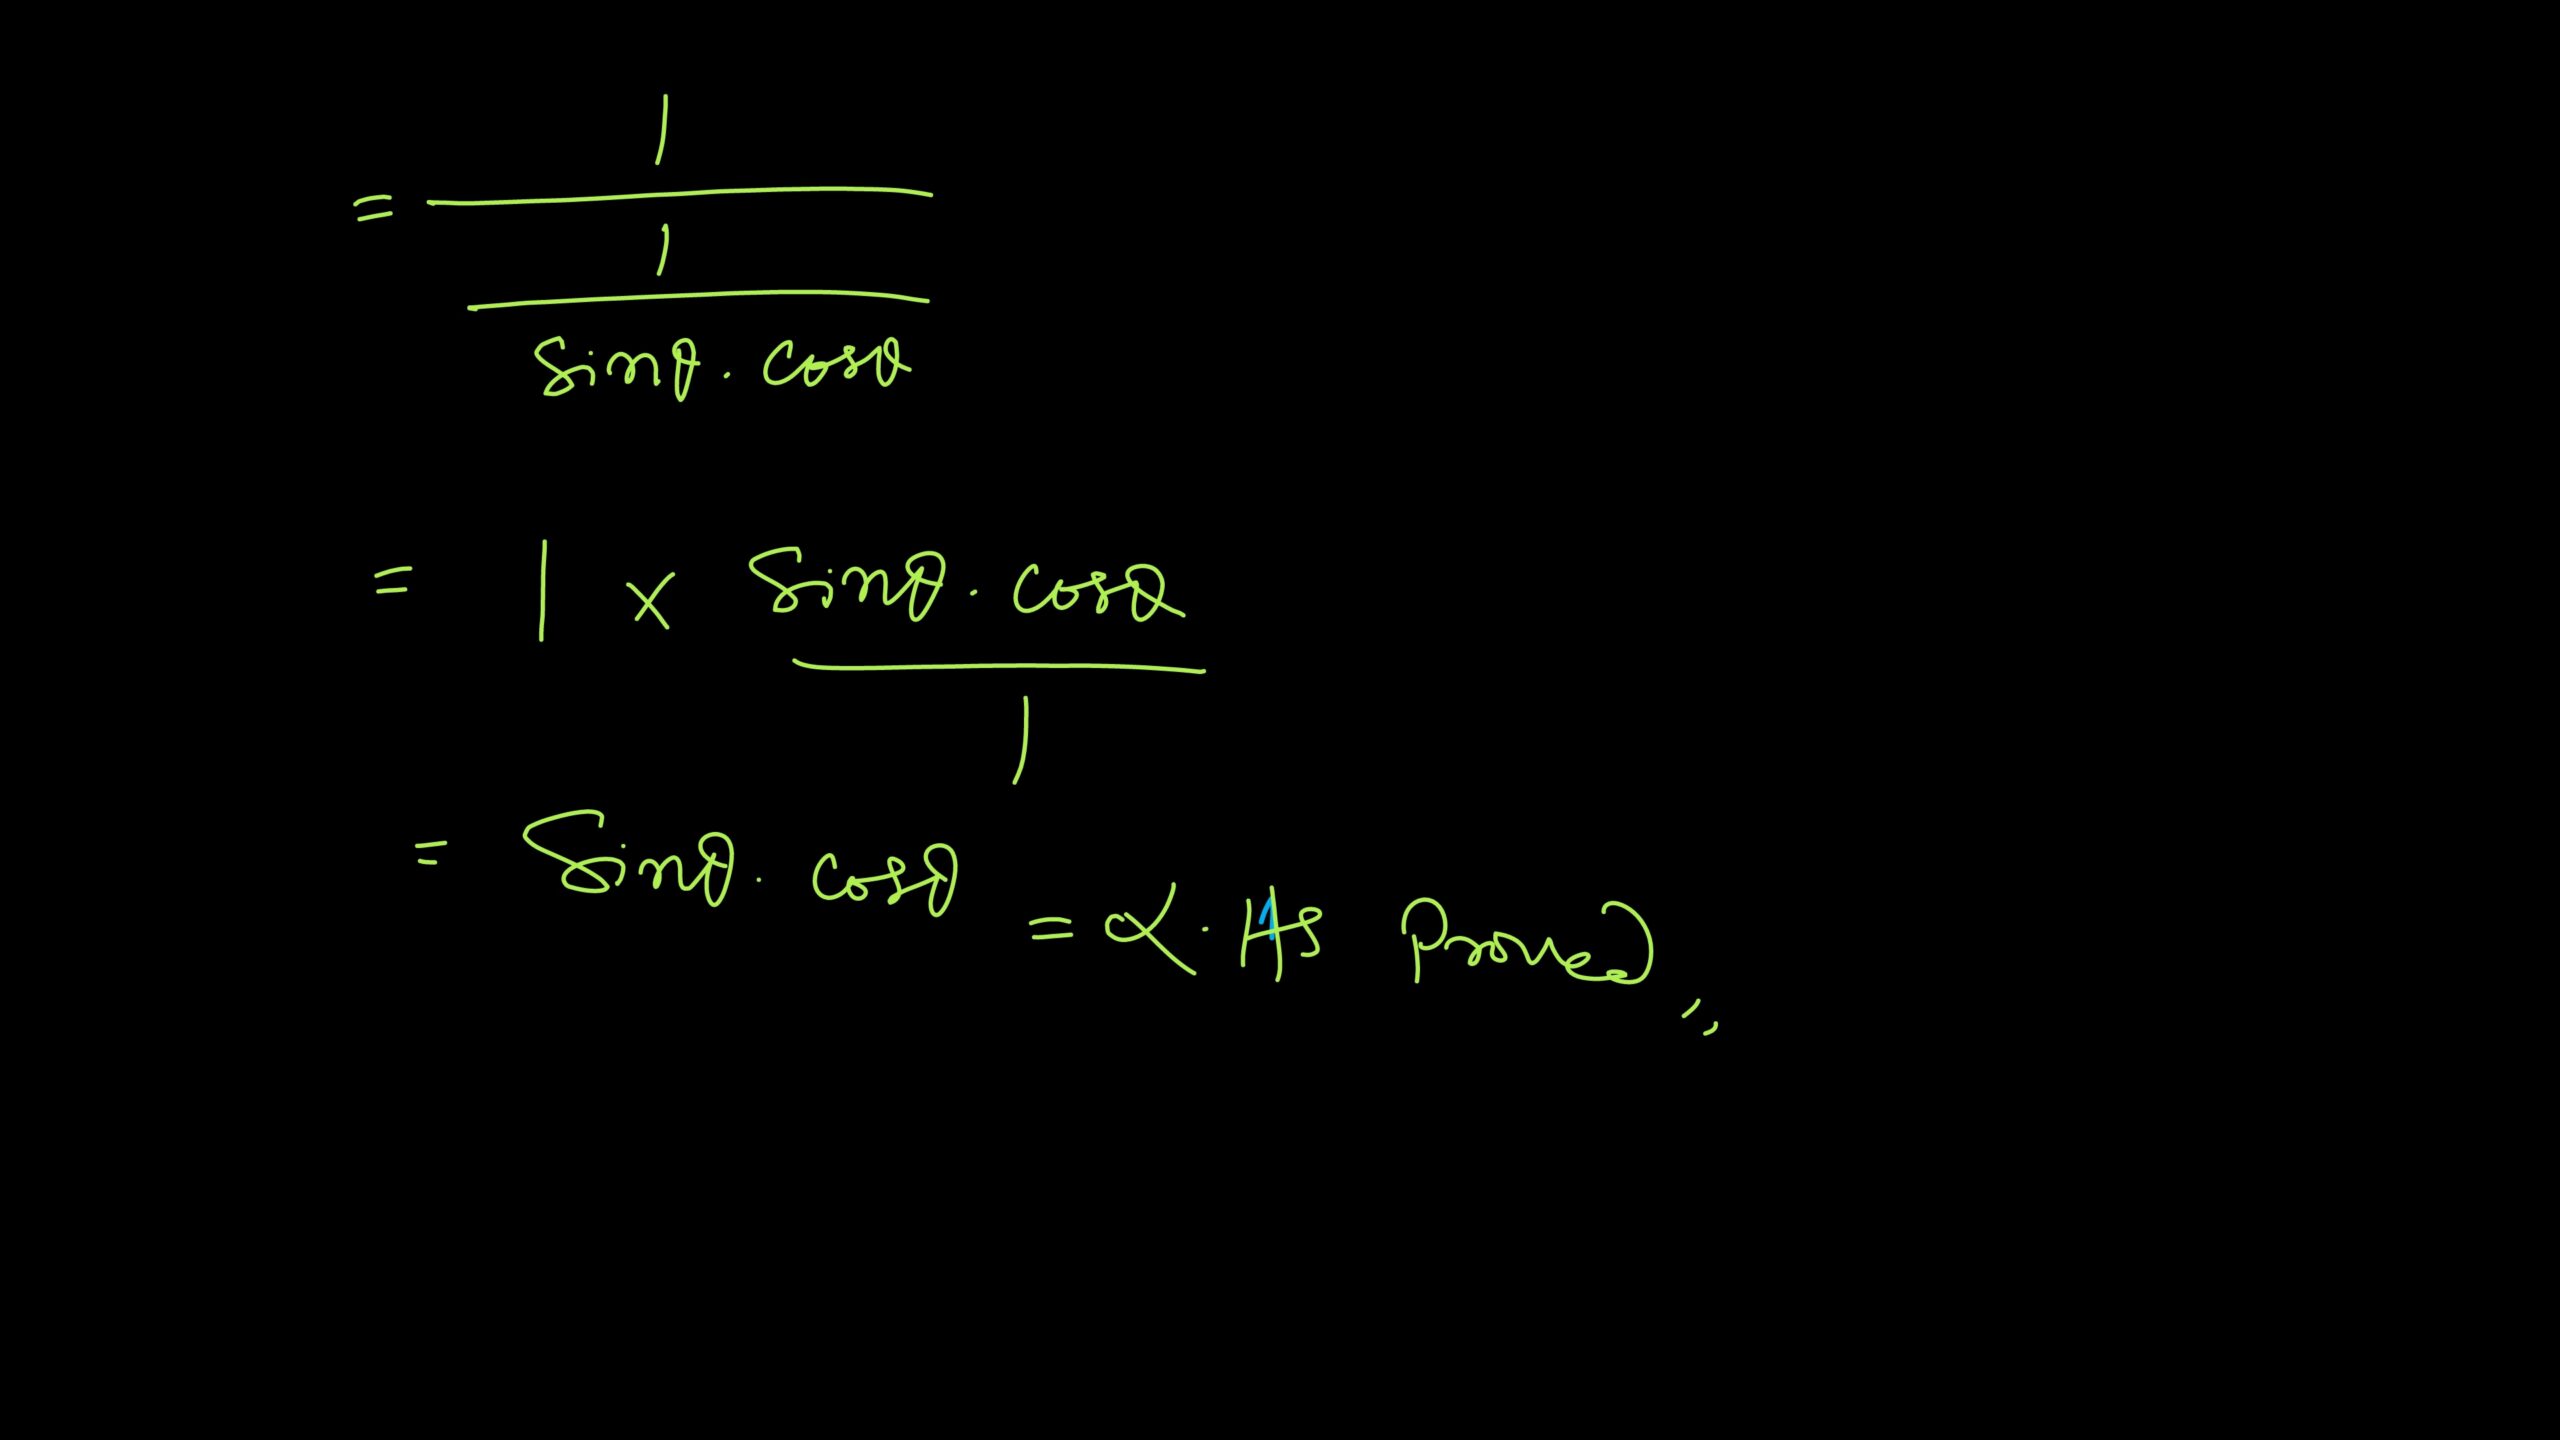 = 1
1
sinθ . cosθ
= 1 × sinθ . cosθ
1
= sinθ . cosθ = α. Hs Proved,,